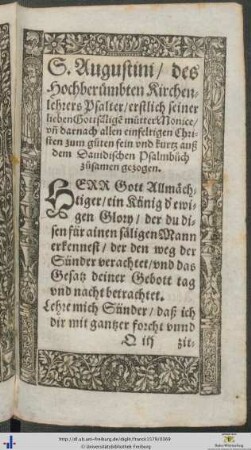 S. Augustini / des
Hochberümbten Kirchen-
lehrers Psalter / erstlich seiner
lieben Gottsäligē mütter Monice /
vñ darnach allen einfeltigen Chri-
sten zum gůten fein vnd kurtz auß
dem Dauidischen Psalmbůch
zůsamen gezogen.
HERR Gott Allmäch-
tiger / ein König d' ewi-
gen Glory / der du di-
sen für ainen säligen Mann
erkennest / der den weg der
Sünder verachtet / vnd das
Gesatz deiner Gebott tag
vnd nacht betrachtet.
Lehre mich Sünder / daß ich
dir mit gantzer forcht vnnd
Q iij zit-
http://dl.ub.uni-freiburg.de/diglit/
© Universitätsbibliothek Freiburg